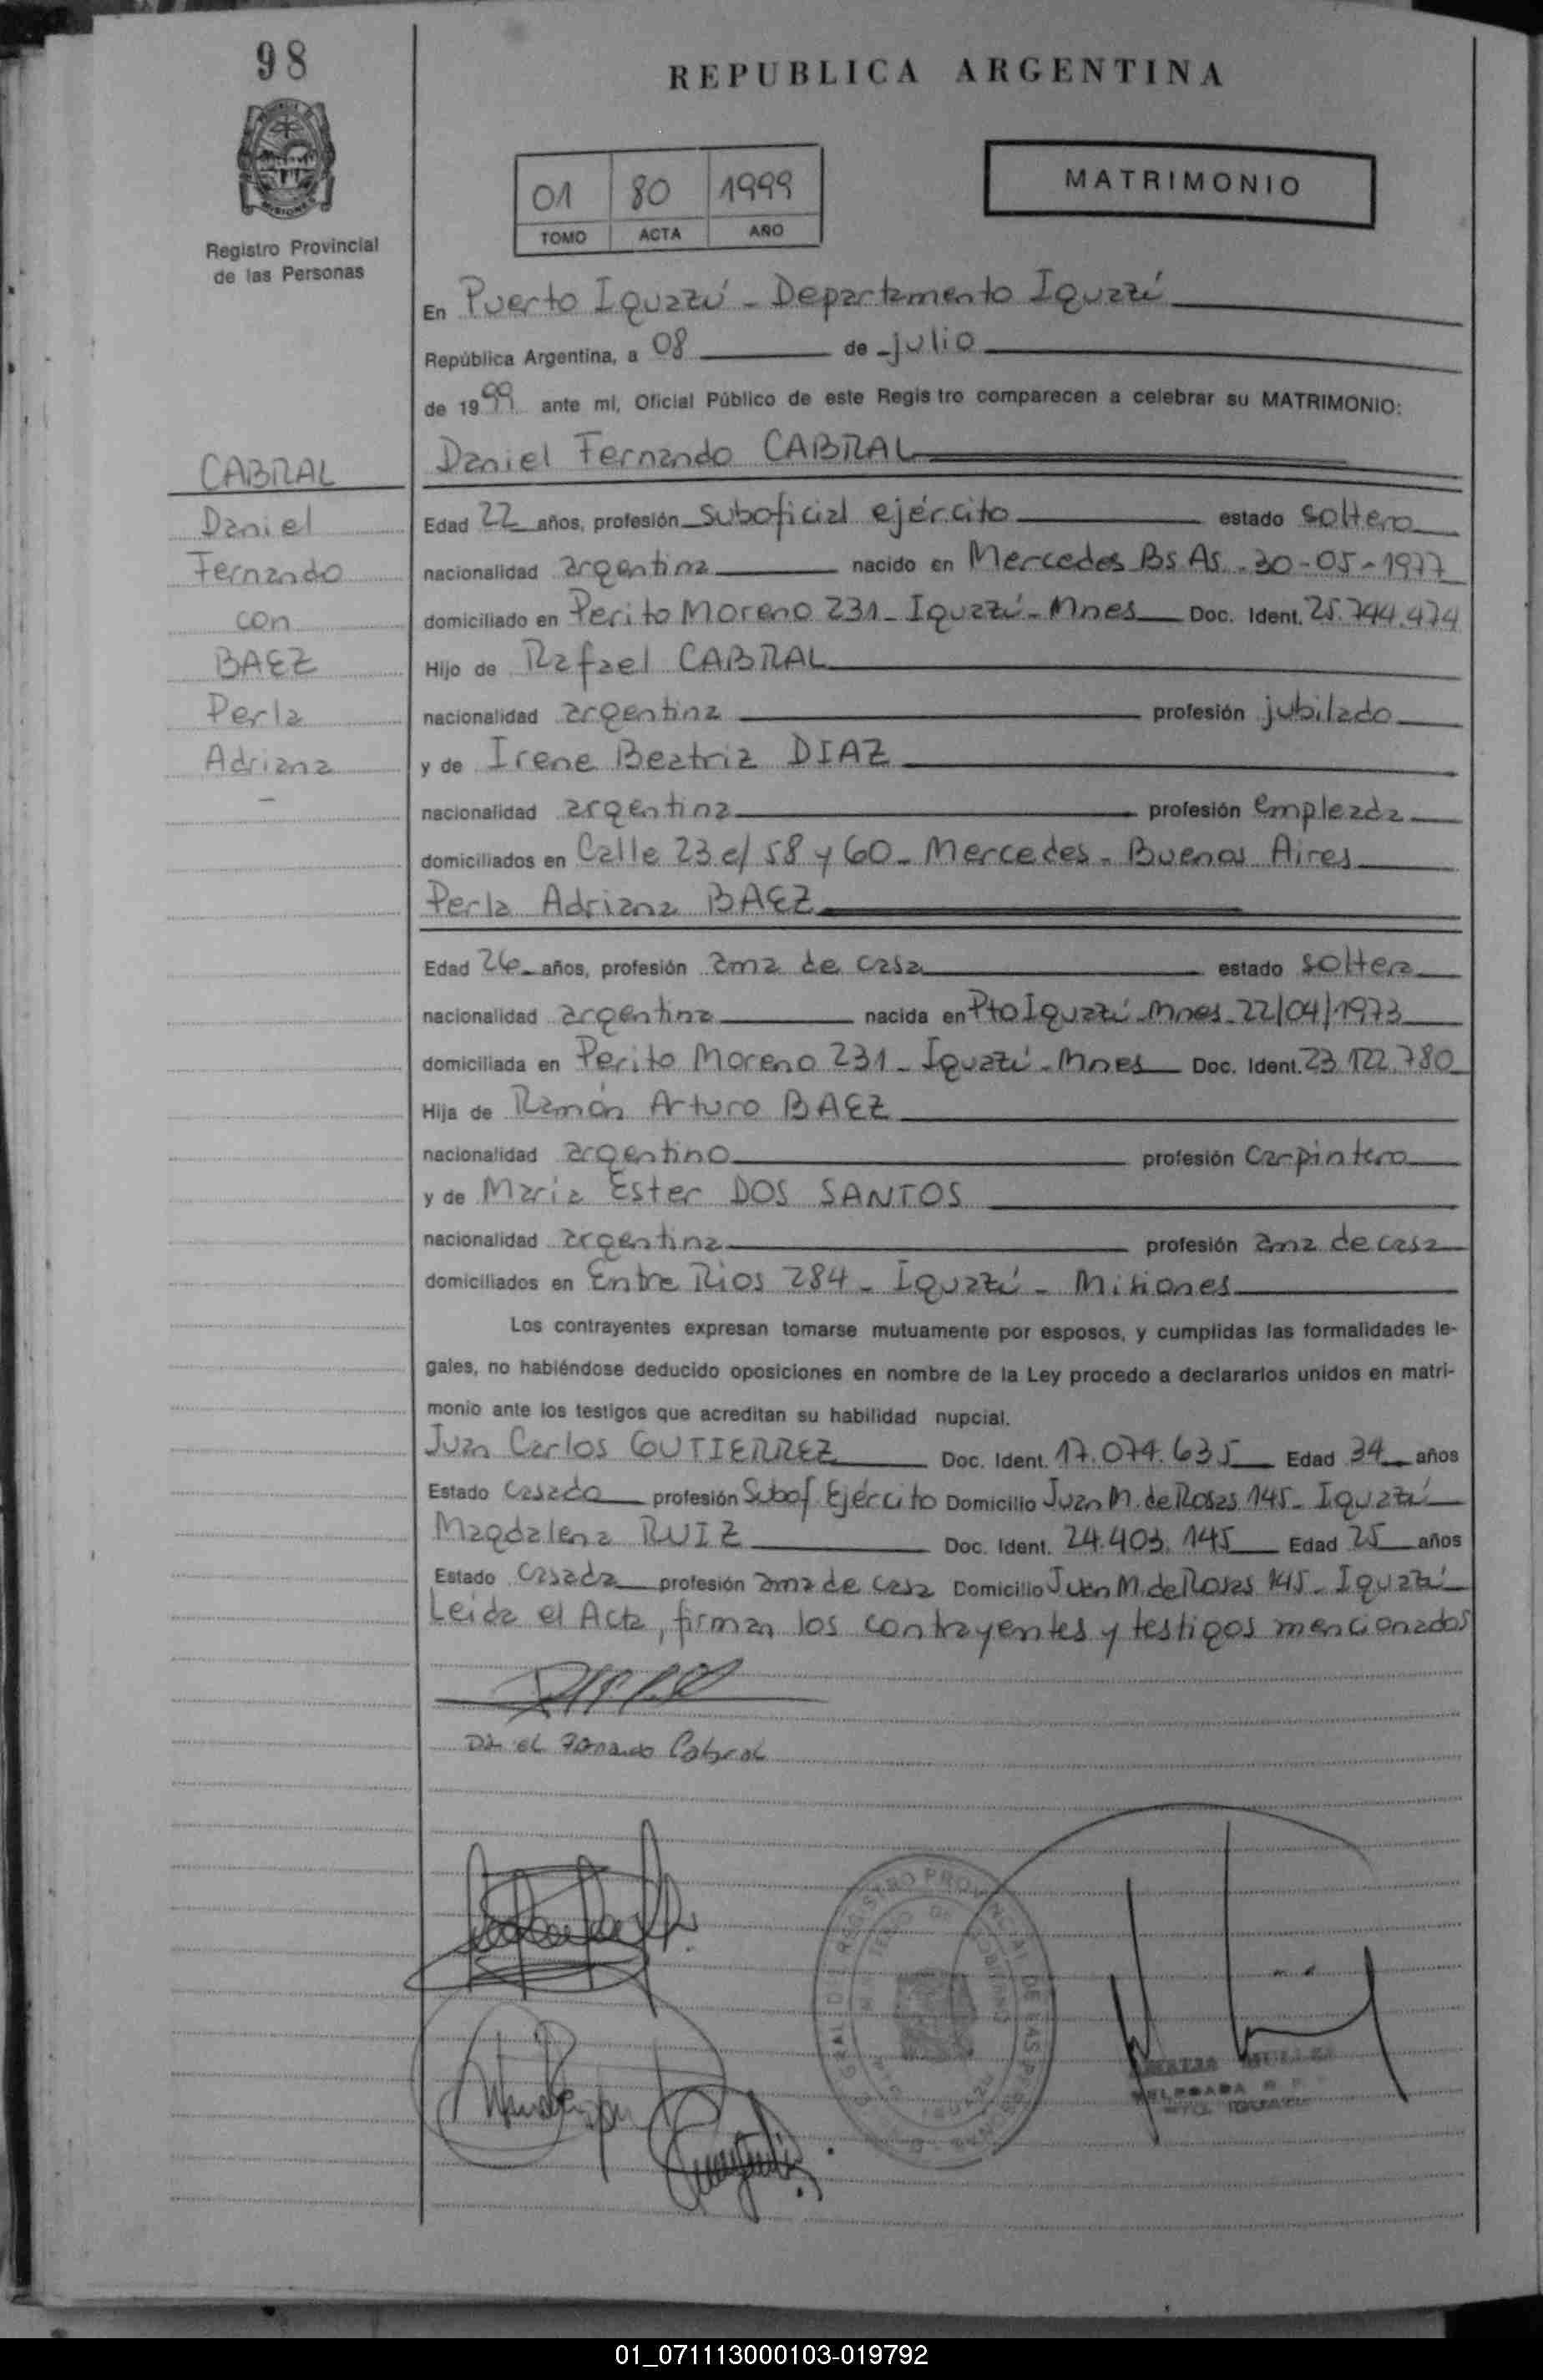 98
REPUBLICA ARGENTINA
MISIONES
Registro Provincial
de las Personas
01 80 1999
TOMO ACTA AÑO
MATRIMONIO
En Puerto Iguazú - Departamento Iguazú
República Argentina, a 08 de julio
de 1999 ante mí, Oficial Público de este Registro comparecen a celebrar su MATRIMONIO:
CABRAL
Daniel
Fernando
con
BAEZ
Perla
Adriana
Daniel Fernando CABRAL
Edad 22 años, profesión suboficial ejército estado soltero
nacionalidad argentina nacido en Mercedes Bs As - 30-05-1977
domiciliado en Perito Moreno 231 - Iguazú - Mnes Doc. Ident. 25.744.474
Hijo de Rafael CABRAL
nacionalidad argentina profesión jubilado
y de Irene Beatriz DIAZ
nacionalidad argentina profesión empleada
domiciliados en Calle 23 e/ 58 y 60 - Mercedes - Buenos Aires
Perla Adriana BAEZ
Edad 26 años, profesión ama de casa estado soltera
nacionalidad argentina nacida en Pto Iguazú - Mnes - 22/04/1973
domiciliada en Perito Moreno 231 - Iguazú - Mnes Doc. Ident. 23.122.780
Hija de Ramón Arturo BAEZ
nacionalidad argentino profesión carpintero
y de Maria Ester DOS SANTOS
nacionalidad argentina profesión ama de casa
domiciliados en Entre Rios 284 - Iguazú - Misiones
Los contrayentes expresan tomarse mutuamente por esposos, y cumplidas las formalidades le-
gales, no habiéndose deducido oposiciones en nombre de la Ley procedo a declararlos unidos en matri-
monio ante los testigos que acreditan su habilidad nupcial.
Juan Carlos GUTIERREZ Doc. Ident. 17.074.635 Edad 34 años
Estado casado profesión Subof. Ejército Domicilio Juan M. de Rosas 145 - Iguazú
Magdalena RUIZ Doc. Ident. 24.403.145 Edad 25 años
Estado casada profesión ama de casa Domicilio Juan M. de Rosas 145 - Iguazú
Leida el Acta, firman los contrayentes y testigos mencionados
Daniel Fernando Cabral
01_071113000103-019792